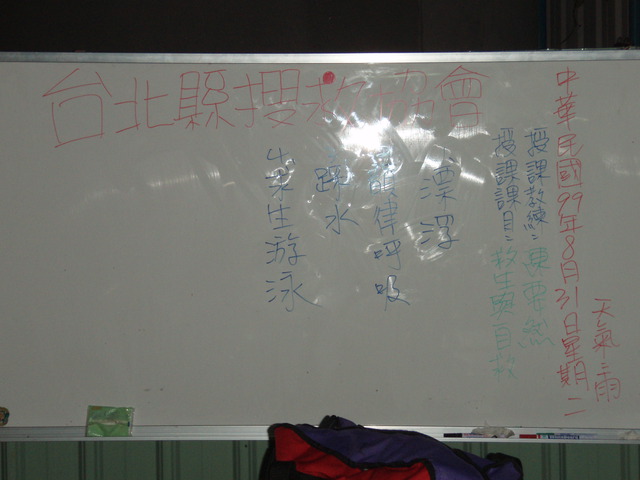 台北縣搜救協會
中華民國99年8月31日星期二
天氣:雨
授課教練:陳
授課課目:救生與自救
漂浮
韻律呼吸
踩水
求生游泳